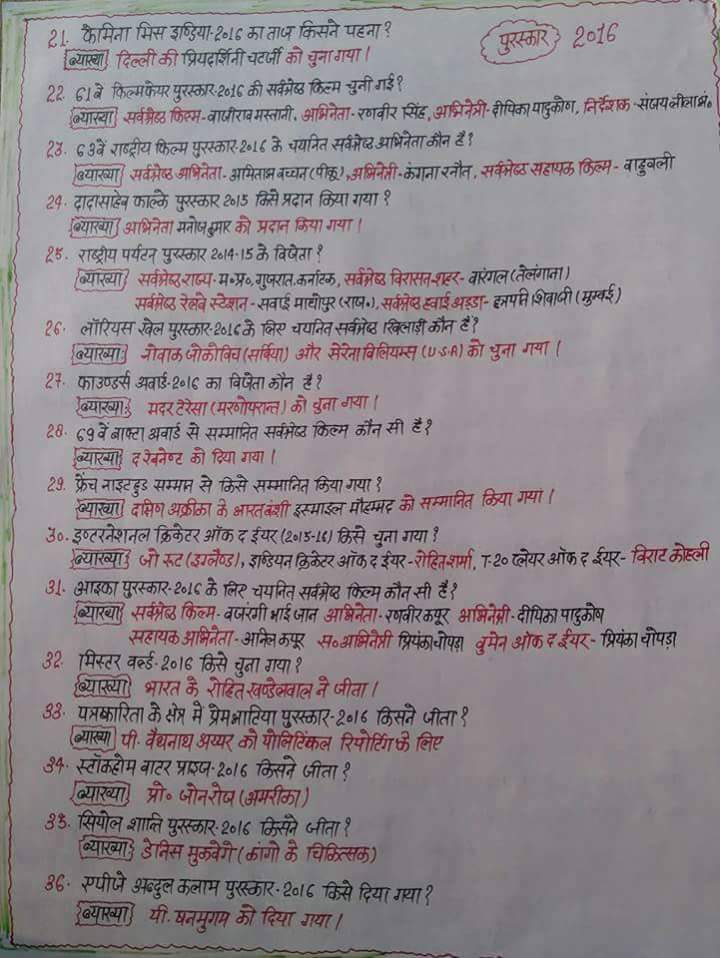 पुरस्कार 2016
21. फेमिना मिस इण्डिया-2016 का ताज किसने पहना?
व्याख्या दिल्ली की प्रियदर्शिनी चटर्जी को चुना गया।
22. 61वे फिल्मफेयर पुरस्कार-2016 की सर्वश्रेष्ठ फिल्म चुनी गई?
व्याख्या सर्वश्रेष्ठ फिल्म-बाजीराव मस्तानी, अभिनेता-रणवीर सिंह, अभिनेत्री-दीपिका पादुकोण, निर्देशक-संजय लीला भं०
23. 63वें राष्ट्रीय फिल्म पुरस्कार-2016 के चयनित सर्वश्रेष्ठ अभिनेता कौन है?
व्याख्या सर्वश्रेष्ठ अभिनेता-अमिताभ बच्चन (पीकू), अभिनेत्री-कंगना रनौत, सर्वश्रेष्ठ सहायक फिल्म-बाहुबली
24. दादासाहेब फाल्के पुरस्कार 2015 किसे प्रदान किया गया?
व्याख्या अभिनेता मनोज कुमार को प्रदान किया गया।
25. राष्ट्रीय पर्यटन पुरस्कार 2014-15 के विजेता?
व्याख्या सर्वश्रेष्ठ राज्य-म०प्र०, गुजरात, कर्नाटक, सर्वश्रेष्ठ विरासत शहर-वारंगल (तेलंगाना)
सर्वश्रेष्ठ रेलवे स्टेशन-सवाई माधोपुर (राज०), सर्वश्रेष्ठ हवाई अड्डा-छत्रपति शिवाजी (मुम्बई)
26. लॉरियस खेल पुरस्कार-2016 के लिए चयनित सर्वश्रेष्ठ खिलाड़ी कौन है?
व्याख्या नोवाक जोकोविच (सर्बिया) और सेरेना विलियम्स (U.S.A) को चुना गया।
27. फाउण्डर्स अवार्ड-2016 का विजेता कौन है?
व्याख्या मदर टेरेसा (मरणोपरान्त) को चुना गया।
28. 69वें बाफ्टा अवार्ड से सम्मानित सर्वश्रेष्ठ फिल्म कौन सी है?
व्याख्या द रेवनेण्ट को दिया गया।
29. फ्रेंच नाइटहुड सम्मान से किसे सम्मानित किया गया?
व्याख्या दक्षिण अफ्रीका के भारतवंशी इस्माइल मौहम्मद को सम्मानित किया गया।
30. इण्टरनेशनल क्रिकेटर ऑफ द ईयर (2015-16) किसे चुना गया?
व्याख्या जो रूट (इंग्लैण्ड), इण्डियन क्रिकेटर ऑफ द ईयर-रोहित शर्मा, T-20 प्लेयर ऑफ द ईयर-विराट कोहली
31. आइफा पुरस्कार-2016 के लिए चयनित सर्वश्रेष्ठ फिल्म कौन सी है?
व्याख्या सर्वश्रेष्ठ फिल्म-बजरंगी भाई जान अभिनेता-रणवीर कपूर अभिनेत्री-दीपिका पादुकोण
सहायक अभिनेता-अनिल कपूर स०अभिनेत्री प्रियंका चोपड़ा वुमेन ऑफ द ईयर-प्रियंका चोपड़ा
32. मिस्टर वर्ल्ड-2016 किसे चुना गया?
व्याख्या भारत के रोहित खण्डेलवाल ने जीता।
33. पत्रकारिता के क्षेत्र मे प्रेम भाटिया पुरस्कार-2016 किसने जीता?
व्याख्या पी. वैधनाथ अय्यर को पोलिटिकल रिपोर्टिंग के लिए
34. स्टॉकहोम वाटर प्राइज-2016 किसने जीता?
व्याख्या प्रो० जोन रोज (अमरीका)
35. सियोल शान्ति पुरस्कार-2016 किसने जीता?
व्याख्या डेनिस मुकवेगे (कांगो के चिकित्सक)
36. एपीजे अब्दुल कलाम पुरस्कार-2016 किसे दिया गया?
व्याख्या पी. षनमुगम को दिया गया।